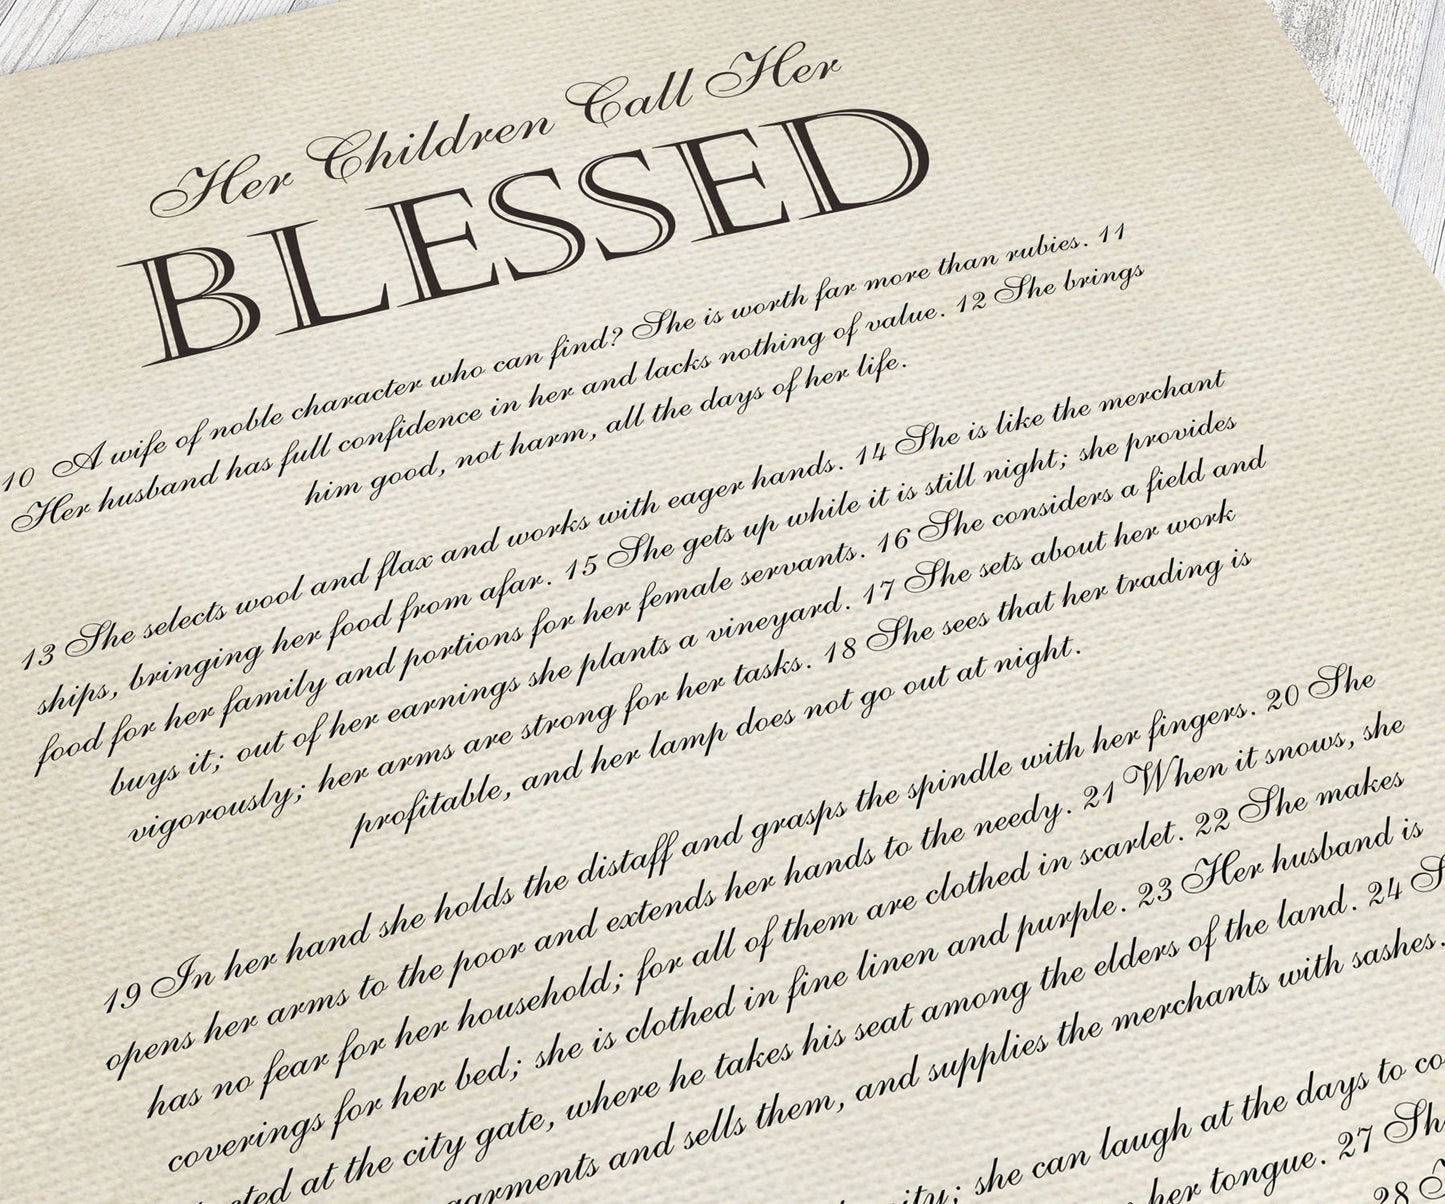 Her Children Call Her
BLESSED
10 A wife of noble character who can find? She is worth far more than rubies. 11
Her husband has full confidence in her and lacks nothing of value. 12 She brings
him good, not harm, all the days of her life.
13 She selects wool and flax and works with eager hands. 14 She is like the merchant
ships, bringing her food from afar. 15 She gets up while it is still night; she provides
food for her family and portions for her female servants. 16 She considers a field and
buys it; out of her earnings she plants a vineyard. 17 She sets about her work
vigorously; her arms are strong for her tasks. 18 She sees that her trading is
profitable, and her lamp does not go out at night.
19 In her hand she holds the distaff and grasps the spindle with her fingers. 20 She
opens her arms to the poor and extends her hands to the needy. 21 When it snows, she
has no fear for her household; for all of them are clothed in scarlet. 22 She makes
coverings for her bed; she is clothed in fine linen and purple. 23 Her husband is
at the city gate, where he takes his seat among the elders of the land. 24
and sells them, and supplies the merchants with sashes.
she can laugh at the days to
her tongue. 27
28